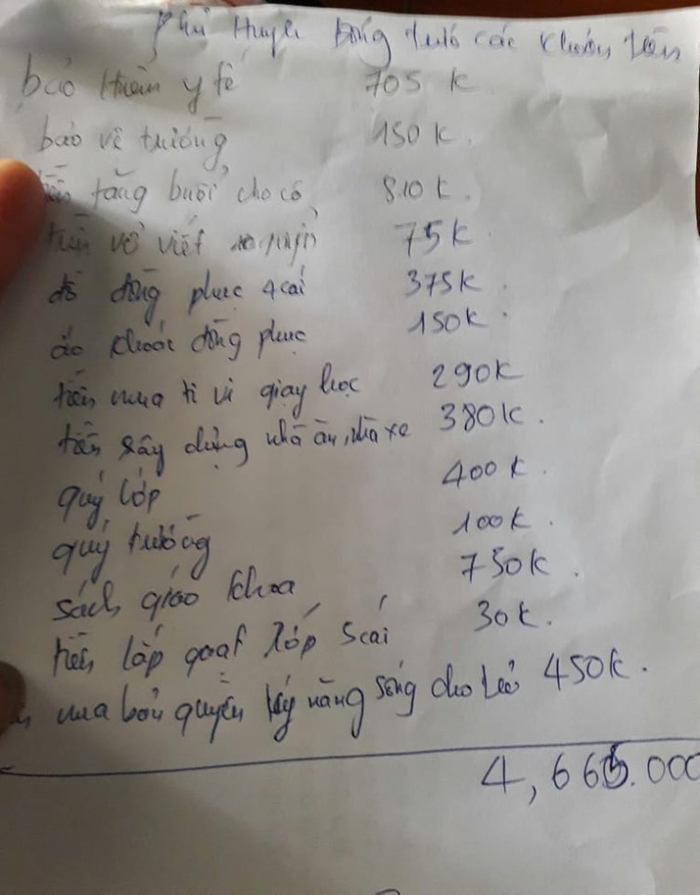 phụ Huynh đóng trước các khoản tiền
bảo hiểm y tế 705 K.
bảo vệ trường 150K.
tiền tăng buổi cho cô 810 K.
tiền vở viết 75K
đồ đồng phục 4 cái 375K.
áo khoác đồng phục 150K.
tiền mua ti vi giạy học 290K
tiền xây dựng nhà ăn, nhà xe 380K.
quỹ lớp 400K.
quỹ trường 100K.
sách giáo khoa 750K.
tiền lắp quạt lớp 5 cái 30K.
mua bản quyền kỹ năng sống cho trẻ 450K.
4,665.000